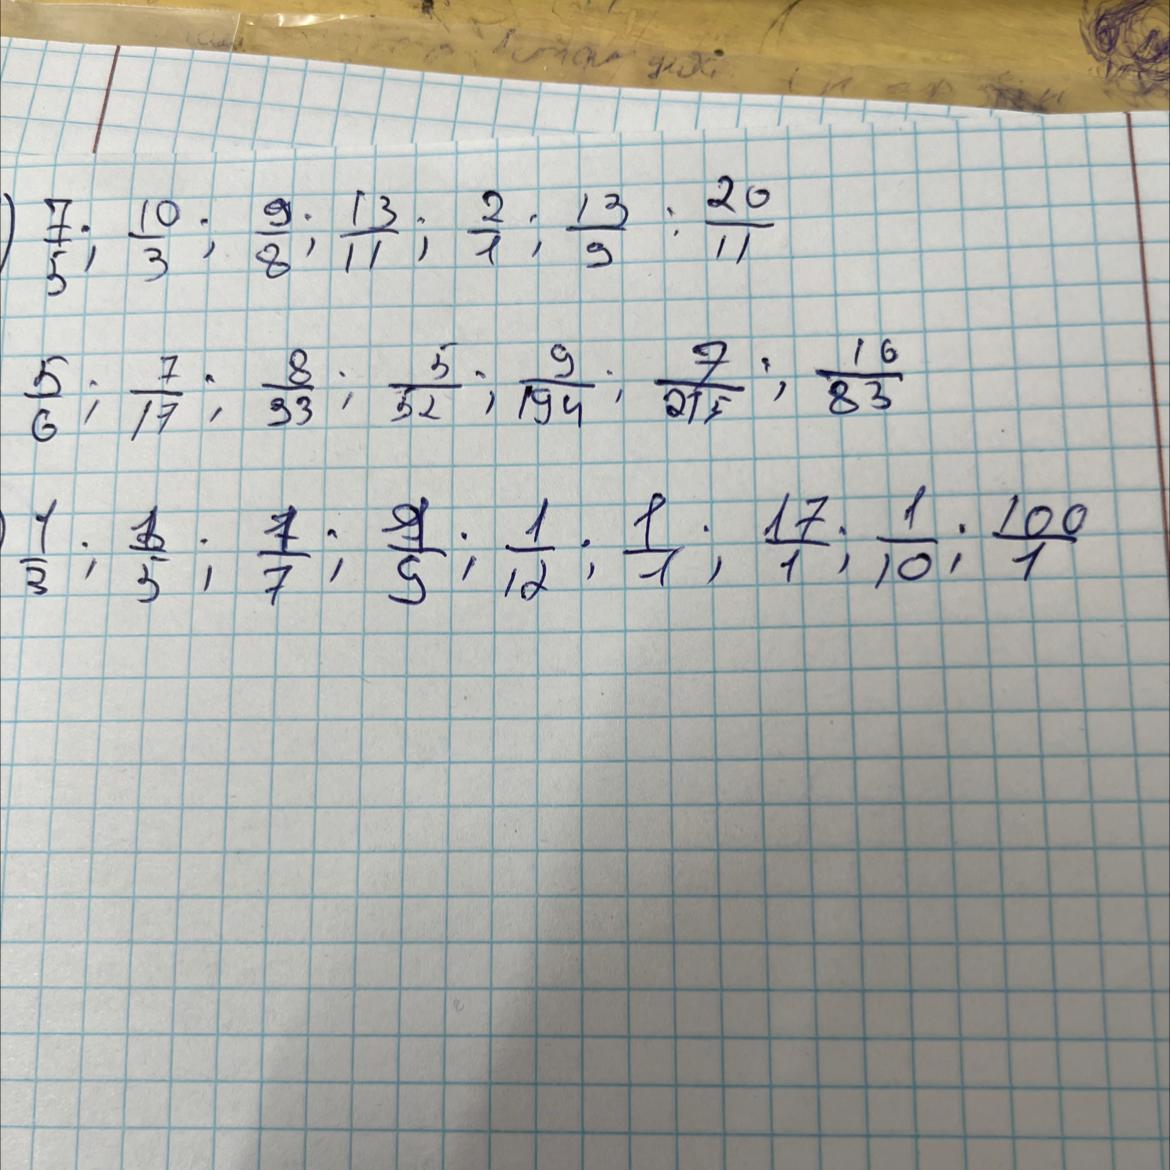 ) 7/5; 10/3; 9/8; 13/11; 2/1; 13/9; 20/11
5/6; 7/17; 8/33; 5/52; 9/194; 7/215; 16/83
) 1/3; 1/5; 1/7; 1/9; 1/12; 1/1; 17/1; 1/10; 100/1